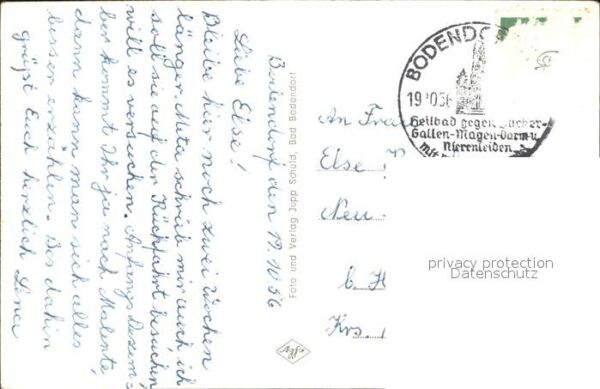 Bodendorf den 19.10.56
Liebe Else!
Bleibe hier noch zwei Wochen
länger. Meta schrieb mir auch, ich
soll sie auf der Rückfahrt besuchen,
will es versuchen. Anfangs Dezem-
ber kommt Ihr ja nach Malente,
dann kann man sich alles
besser erzählen. Bis dahin
grüßt Euch herzlich Lena
Foto und Verlag Jupp Schuld, Bad Bodendorf
Agfa
BODENDO
19.10.56
Heilbad gegen Zucker-
Gallen-Magen-Darm-u.
Nierenleiden
mit
An Frau
Else
Neu-
b. H
Krs.
privacy protection
Datenschutz